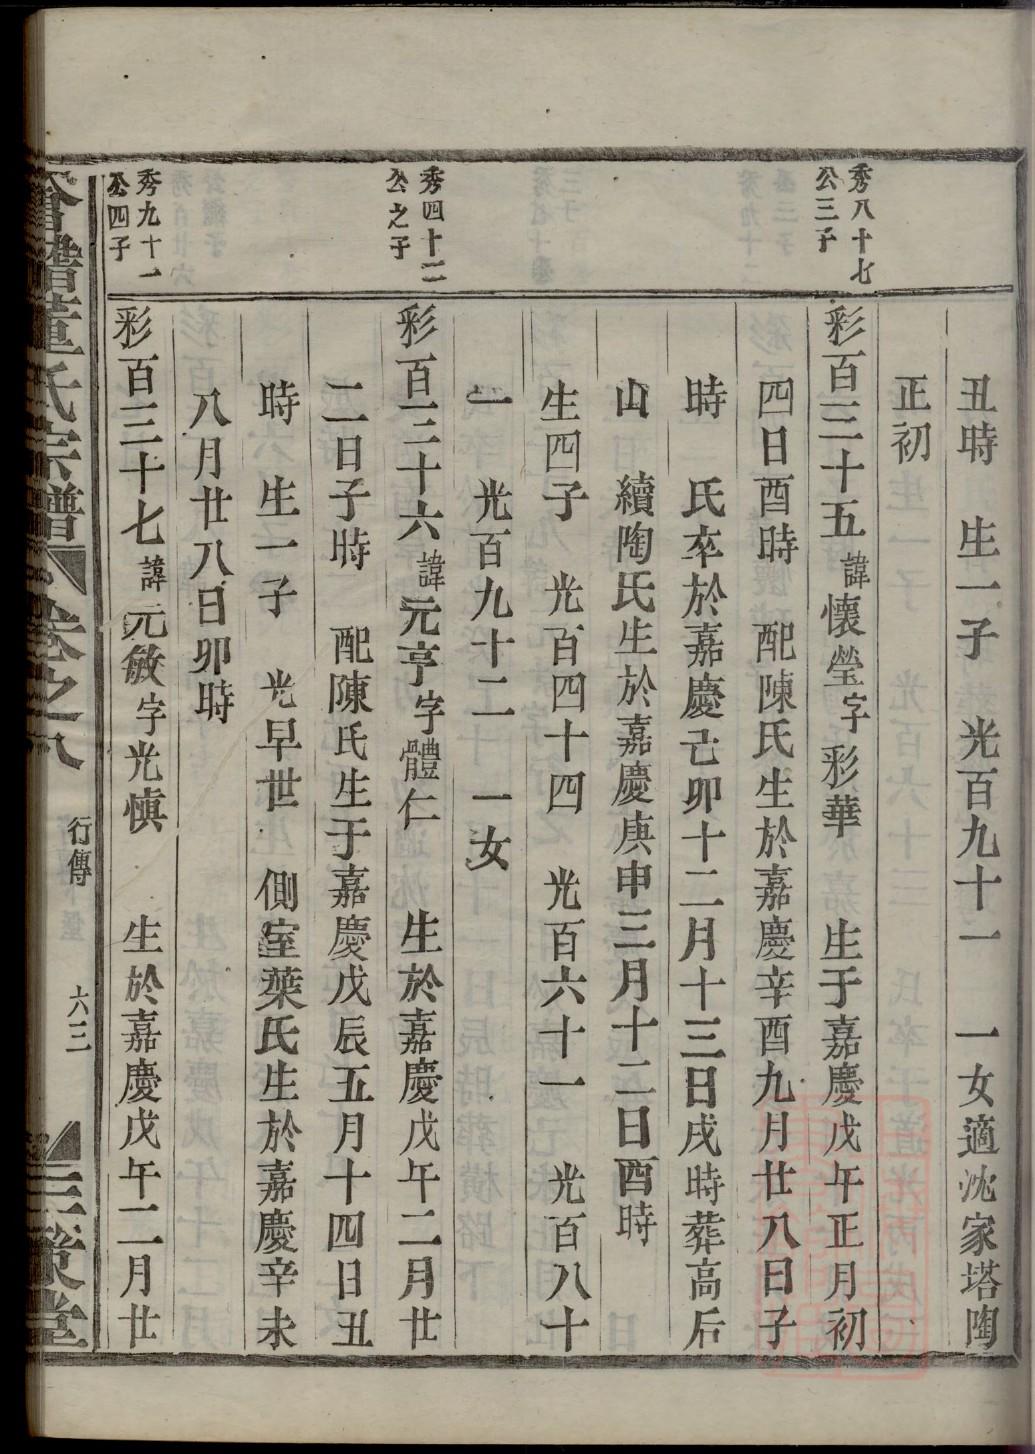 丑時　生一子　光百九十一　一女適沈家塔陶
正初
秀八十七
公三子
彩百三十五諱懷瑩字彩華　生于嘉慶戊午正月初
四日酉時　配陳氏生於嘉慶辛酉九月廿八日子
時　氏卒於嘉慶己卯十二月十三日戌時葬高后
山　續陶氏生於嘉慶庚申三月十二日酉時
生四子　光百四十四　光百六十一　光百八十
一　光百九十二　一女
秀四十二
公之子
彩百三十六諱元亨字體仁　生於嘉慶戊午二月廿
二日子時　配陳氏生于嘉慶戊辰五月十四日丑
時　生一子　光早世　側室葉氏生於嘉慶辛未
八月廿八日卯時
秀九十一
公四子
彩百三十七諱元敏字光愼　生於嘉慶戊午二月廿
董氏宗譜　卷之八　行傳　六三　三策堂